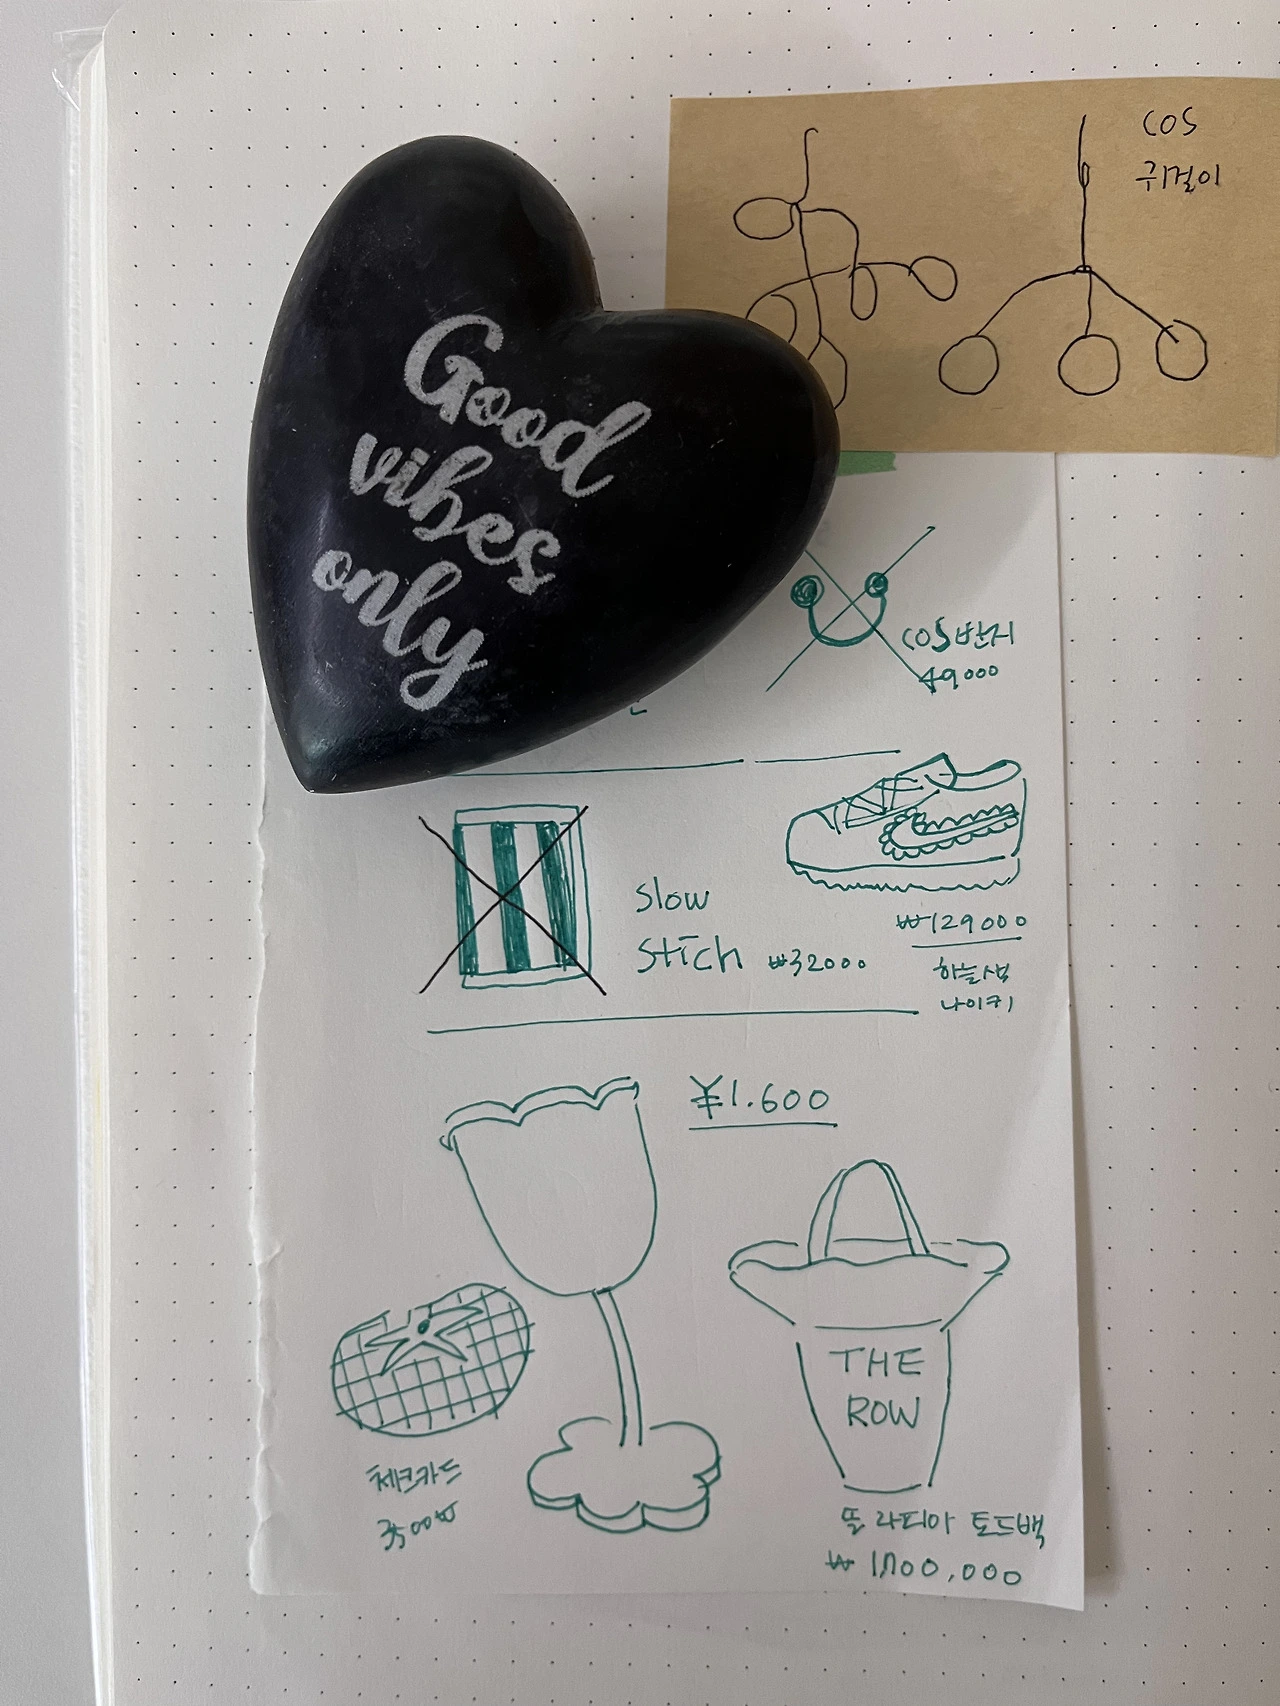 COS
귀걸이
Good
vibes
only
COS 반지
49000
slow
stich ₩32000
₩129000
하늘색
나이키
¥1.600
THE
ROW
체크카드
3500₩
뜰 라피아 토드백
₩ 1,700,000